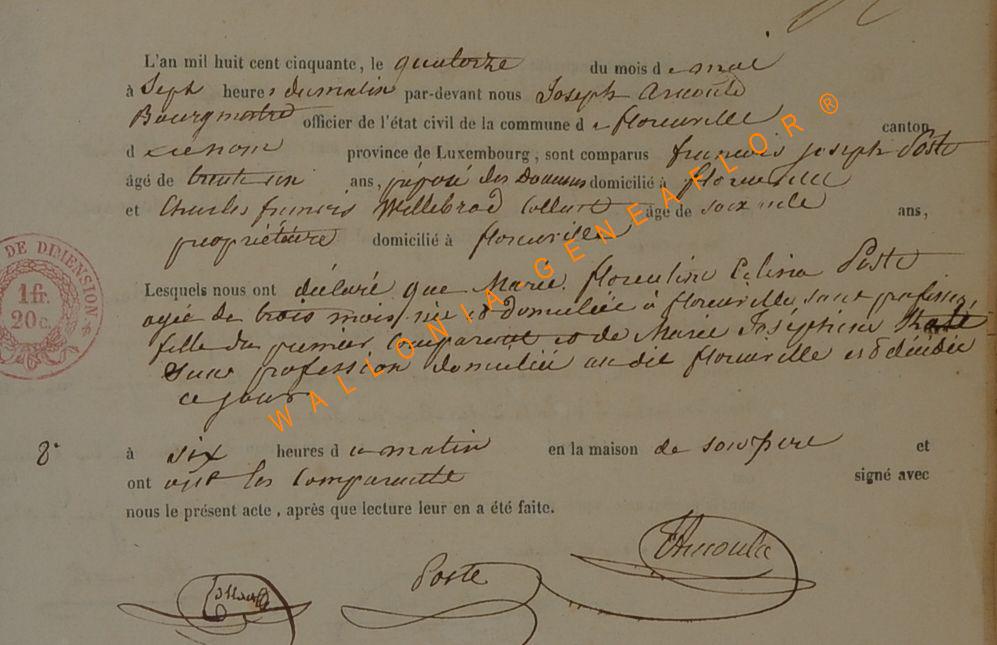 L'an mil huit cent cinquante, le quatorze du mois de mai
à Sept heures du matin par-devant nous Joseph Arnould
Bourgmestre officier de l'état civil de la commune de florenville canton
d province de Luxembourg, sont comparus francois joseph Poste
âgé de trente six ans, préposé des Douanes domicilié à florenville
et Charles francois Willebrod Collart âge de soixante ans,
propriétaire domicilié à florenville
Lesquels nous ont déclaré que Marie florentine Celina Poste
agée de trois mois, née et domiciliée à florenville, sans profession,
fille du premier comparant et de Marie Joséphine
sans profession domiciliée au dit florenville est décédée
ce jour
8e à six heures de matin en la maison de son père et
ont les comparants signé avec
nous le présent acte, après que lecture leur en a été faite.
Collart Poste Arnould
DE DIMENSION
1fr.
20c.
WALLONIA-GENEAFLOR ®